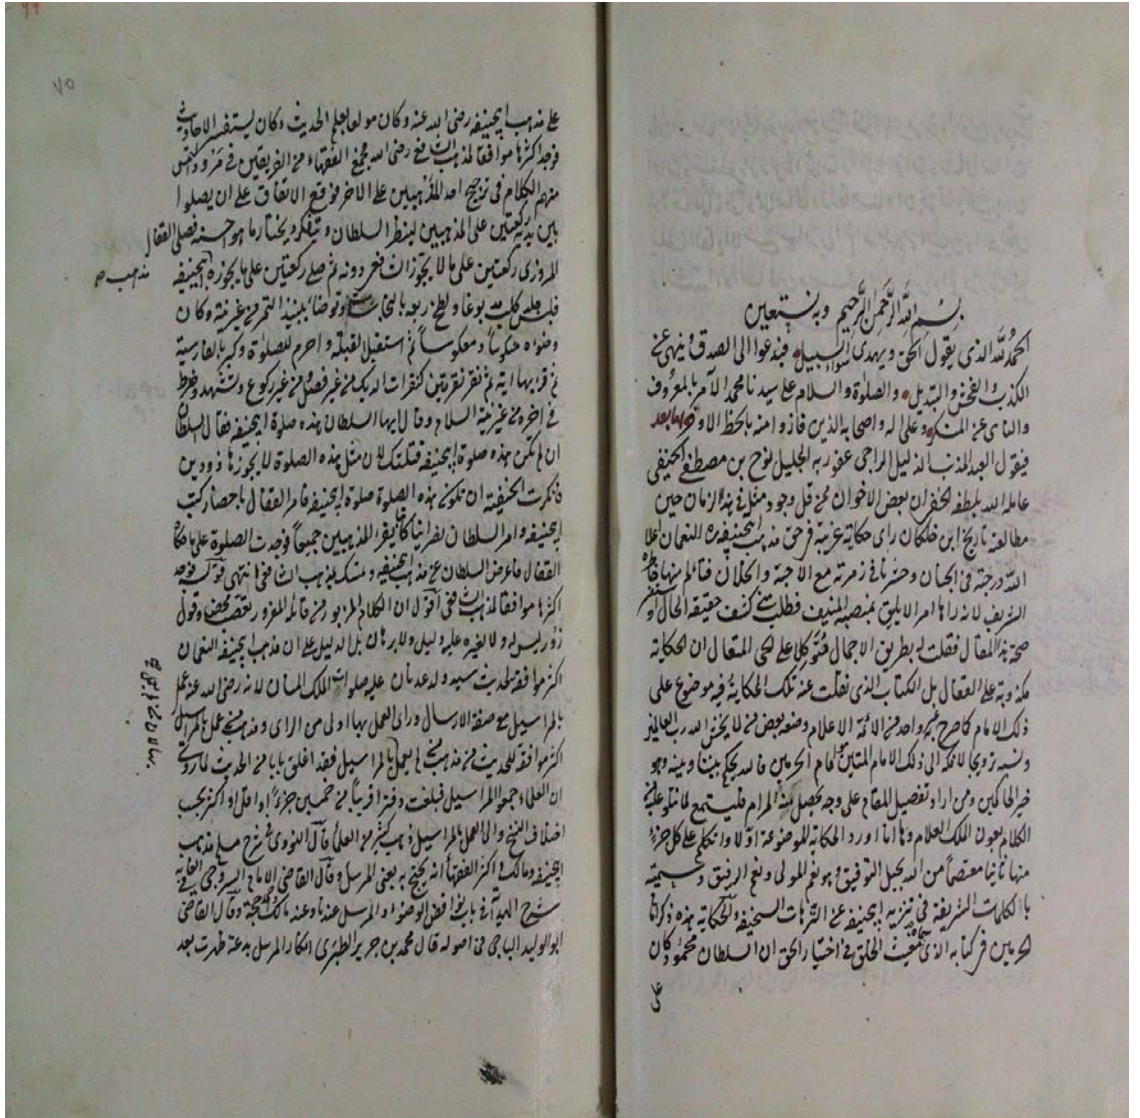 بسم الله الرحمن الرحيم وبه نستعين
الحمد لله الذي يقول الحق ويهدي السبيل فيدعوا الى الصدق وينهى عن
الكذب والفحش والتبديل والصلوة والسلام على سيدنا محمد الآمر بالمعروف
والناهي عن المنكر وعلى اله واصحابه الذين فازوا منه بالحظ الاوفر اما بعد
فيقول العبد المذنب الذليل الراجي عفو ربه الجليل نوح بن مصطفى الحنيفي
عامله الله بلطفه الخفي ان بعض الاخوان ممن قل وجود مثله في هذا الزمان حين
مطالعة تاريخ ابن خلكان راى حكاية غريبة في حق مذهب ابي حنيفة النعمان اعلا
الله درجته في الجنان وحشرنا في زمرته مع الاحبة والخلان فتالم منها خاطره
الشريف لانه راها امرا لا يليق بمنصبه المنيف فطلب مني كشف حقيقة الحال او
صحة هذا المقال فقلت له بطريق الاجمال متوكلا على الحي المتعال ان الحكاية
مكذوبة على القفال بل الكتاب الذي نقلت عنه تلك الحكاية فيه موضوع على
ذلك الامام كما صرح به غير واحد من الائمة الاعلام وضعه بعض من لا يخشى الله رب العالمين
ونسبه ترويجا لافكه الى ذلك الامام المتين امام الحرمين فالله يحكم بيننا وبينه وهو
خير الحاكمين ومن اراد تفصيل المقام على وجه يحصل به المرام فليستمع لما نتلو عليه
الكلام بعون الملك العلام وها انا اورد الحكاية الموضوعة اولا واتكلم على كل جزء
منها ثانيا معتصما من الله بحبل التوفيق وهو نعم المولى ونعم الرفيق وسميته
بالكلمات الشريفة في تنزيه ابي حنيفة عن الترهات السخيفة والحكاية هذه ذكر امام
الحرمين في كتابه الذي سماه مغيث الخلق في اختيار الحق ان السلطان محمود كان
على
على مذهب ابي حنيفة رضي الله عنه وكان مولعا بعلم الحديث وكان يستفسر الاحاديث
فوجد اكثرها موافقا لمذهب الشافعي رضي الله عنه فجمع الفقهاء من الفريقين في مرو والتمس
منهم الكلام في ترجيح احد المذهبين على الاخر فوقع الاتفاق على ان يصلوا
بين يديه ركعتين على المذهبين لينظر السلطان ويتفكر ويختار ما هو احسنه فصلى القفال
المروزي ركعتين على ما لا يجوز الشافعي دونه ثم صلى ركعتين على ما يجوزه ابي حنيفة
مذهب صح
فلبس جلد كلب مدبوغا ولطخ ربعه بالنجاسة وتوضا بنبيذ التمر من غير نية وكان
وضوءه منكوسا ومعكوسا ثم استقبل القبلة واحرم للصلوة وكبر بالفارسية
ثم قرا بها اية ثم نقر نقرتين كنقرات الديك من غير فصل ومن غير ركوع وتشهد وضرط
في اخره من غير نية السلام وقال ايها السلطان هذه صلوة ابي حنيفة فقال السلطان
ان لم تكن هذه صلوة ابي حنيفة قتلتك لان مثل هذه الصلوة لا يجوزها ذو دين
فانكرت الحنيفية ان تكون هذه الصلوة صلوة ابي حنيفة فامر القفال باحضار كتب
ابي حنيفة وامر السلطان نصرانيا كاتبا يقرا المذهبين جميعا فوجدت الصلوة على ما حكاه
القفال فاعرض السلطان عن مذهب ابي حنيفة وتمسك بمذهب الشافعي انتهى قوله فوجد
اكثرها موافقا لمذهب الشافعي اقول ان الكلام المزبور من قائله المغرور تعصب محض وقول
زور ليس له ولا لغيره عليه دليل ولا برهان بل الدليل على ان مذهب ابي حنيفة النعمان
اكثر موافقة لحديث سيد ولد عدنان عليه صلوات الملك المنان لانه رضي الله عنه عمل
بالمراسيل مع صفة الارسال وراى العمل بها اولى من الراى ومذهب من عمل بالمراسيل
اكثر موافقة للحديث من مذهب من لم يعمل بالمراسيل فقد اغلق بابا من الحديث لما روى
ان العلماء جمعوا المراسيل فبلغت دفترا قريبا من خمسين جزءا او اقل او اكثر بحسب
اختلاف النسخ والى العمل بالمراسيل ذهب كثير من العلماء قال النووي في شرح مسلم مذهب
ابي حنيفة ومالك واكثر الفقهاء انه يحتج به يعني المرسل وقال القاضي الامام السروجي في الغاية
شرح الهداية في باب نواقض الوضوء والمرسل عندنا وعند مالك حجة وقال القاضي
ابو الوليد الباجي في اصوله قال محمد بن جرير الطبري انكار المرسل بدعة ظهرت بعد